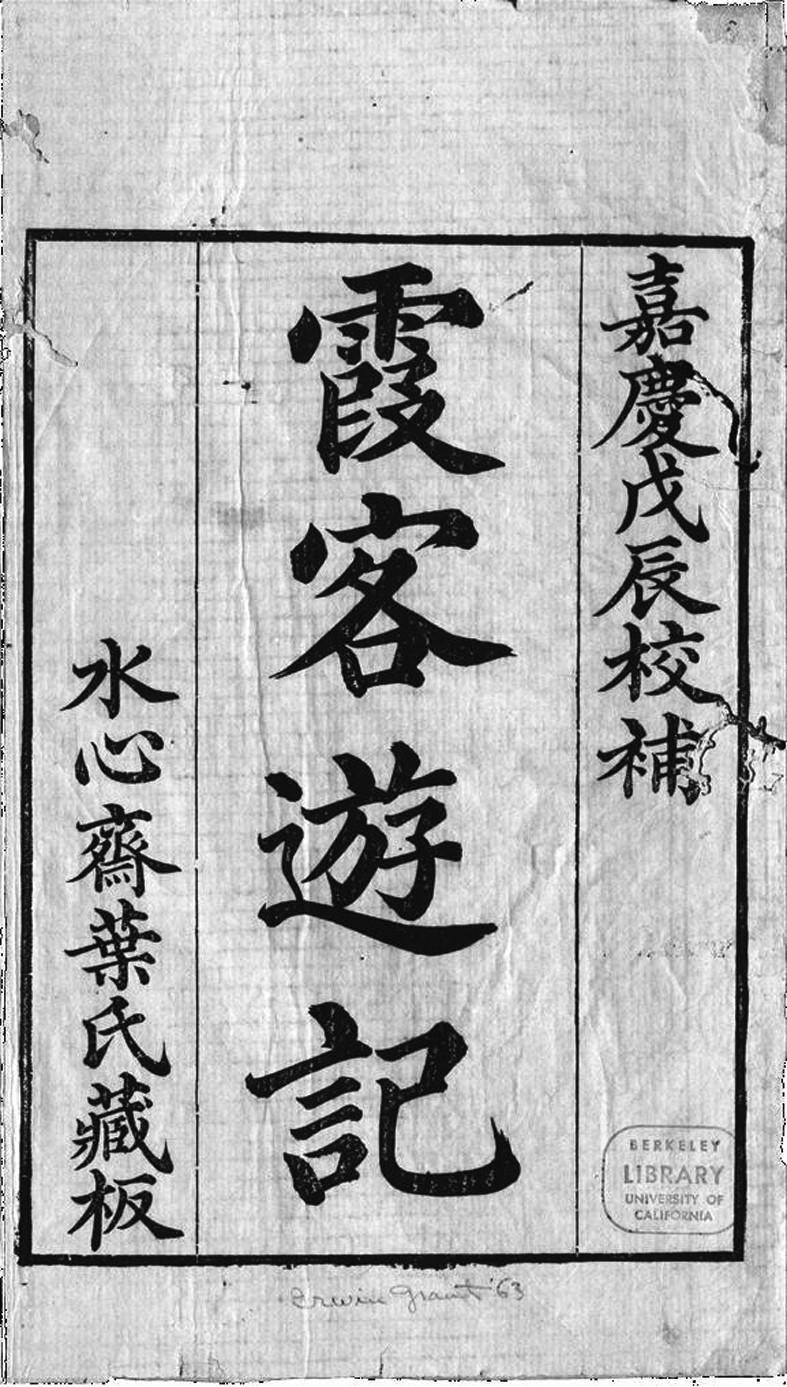 嘉慶戊辰校補
霞客遊記
水心齋葉氏藏板
BERKELEY
LIBRARY
UNIVERSITY OF
CALIFORNIA
Erwin Grant '63